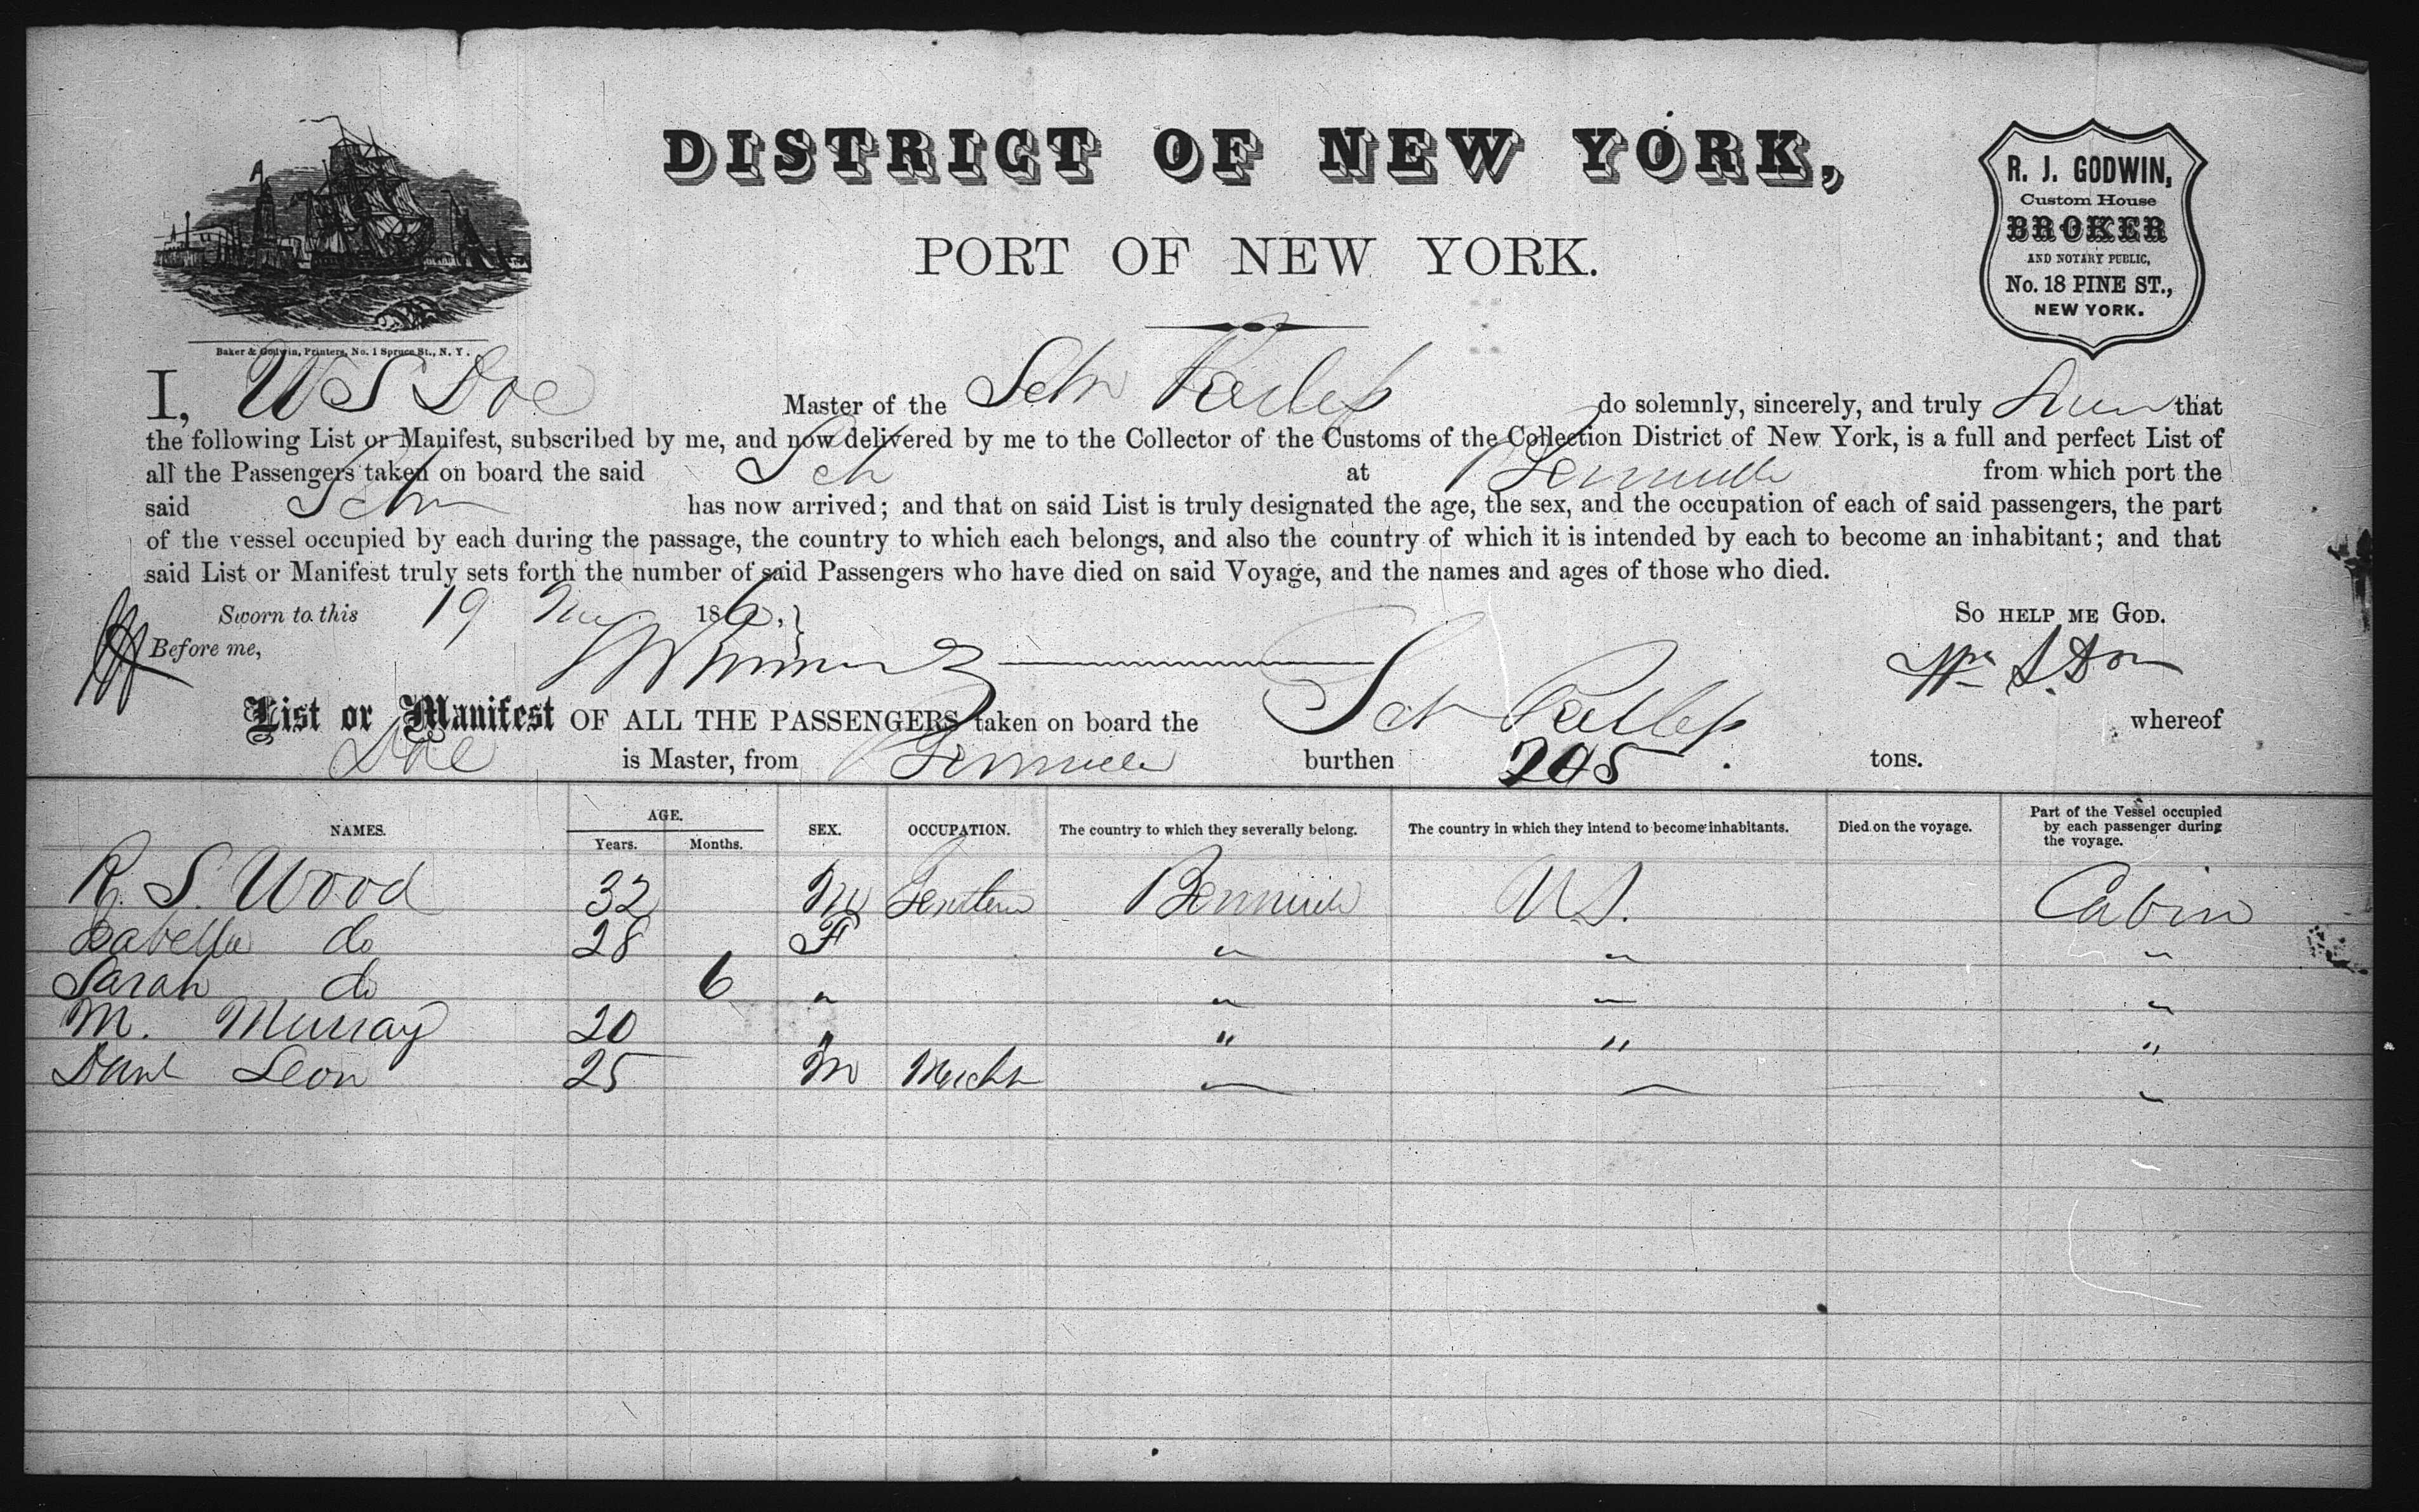 DISTRICT OF NEW YORK,
PORT OF NEW YORK.
R. J. GODWIN,
Custom House
BROKER
AND NOTARY PUBLIC,
No. 18 PINE ST.,
NEW YORK.
Baker & Godwin, Printers, No. 1 Spruce St., N. Y.
I, W S Doe Master of the Schr do solemnly, sincerely, and truly that
the following List or Manifest, subscribed by me, and now delivered by me to the Collector of the Customs of the Collection District of New York, is a full and perfect List of
all the Passengers taken on board the said Sch at from which port the
said Schr has now arrived; and that on said List is truly designated the age, the sex, and the occupation of each of said passengers, the part
of the vessel occupied by each during the passage, the country to which each belongs, and also the country of which it is intended by each to become an inhabitant; and that
said List or Manifest truly sets forth the number of said Passengers who have died on said Voyage, and the names and ages of those who died.
Sworn to this 19 186 SO HELP ME GOD.
Before me, Wm S. Doe
List or Manifest OF ALL THE PASSENGERS taken on board the Sch whereof
Doe is Master, from burthen 205 tons.
NAMES. AGE. Years. Months. SEX. OCCUPATION. The country to which they severally belong. The country in which they intend to become inhabitants. Died on the voyage. Part of the Vessel occupied by each passenger during the voyage.
R. S. Wood 32 M U S. Cabin
Isabella do 28 F " " "
Sarah do 6 " " " "
M. Murray 20 " " " "
Danl Leon 25 M " " "